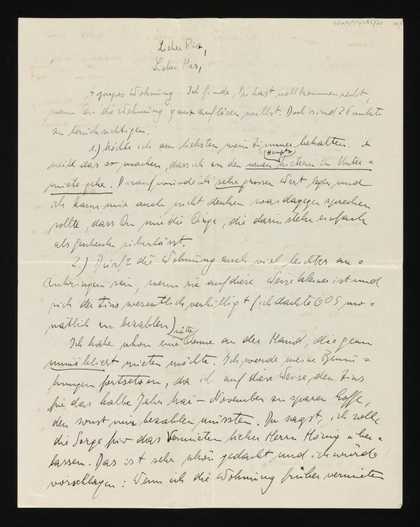 Lieber Pix,
Lieber Pix,
Wohnung. Ich finde, Du hast vollkommen recht,
wenn Du die Wohnung ganz auflösen willst. Doch sind 2 Punkte
zu berücksichtigen.
1) Möchte ich am liebsten mein Zimmer behalten.
weißt das so machen, dass ich in den neuen in Unter-
miete gehe. Darauf würde ich sehr grossen Wert legen, und
ich kann mir auch nicht denken, was dagegen sprechen
sollte, dass Du mir die Dinge, die darin stehn einfach
als geliehen überlässt.
2.) Dürfte die Wohnung auch viel leichter an-
zubringen sein, wenn sie auf diese Weise kleiner ist und
sich der Zins wesentlich verbilligt (ich dachte 60 S. mo-
natlich zu bezahlen)
Ich habe schon eine Dame an der Hand, die ganz
unmöbliert mieten möchte. Ich werde meine Bemü-
hungen fortsetzen, da ich auf diese Weise den Zins
für das halbe Jahr Mai – November zu sparen hoffe,
den wir sonst bezahlen müssten. Du sagst, ich solle
die Sorge für das Vermieten lieber Herrn über-
lassen. Das ist sehr schön gedacht und ich würde
vorschlagen: Wenn ich die Wohnung früher vermieten